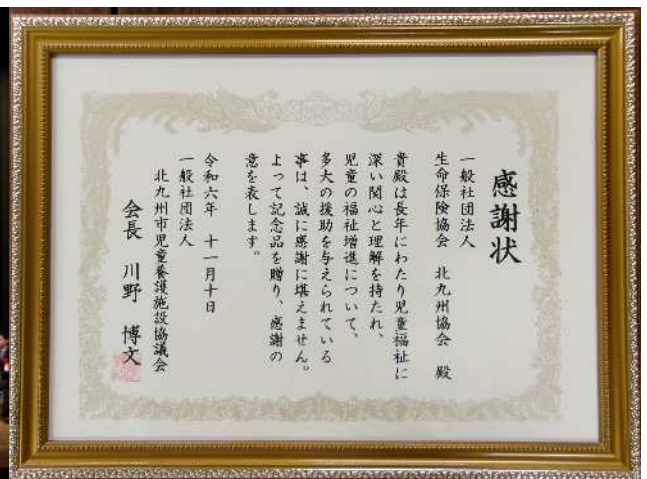 感謝状
一般社団法人
生命保険協会 北九州協会 殿
貴殿は長年にわたり児童福祉に
深い関心と理解を持たれ、
児童の福祉増進について、
多大の援助を与えられている
事は、誠に感謝に堪えません。
よって記念品を贈り、感謝の
意を表します。
令和六年 十一月十日
一般社団法人
北九州市児童養護施設協議会
会長 川野 博文